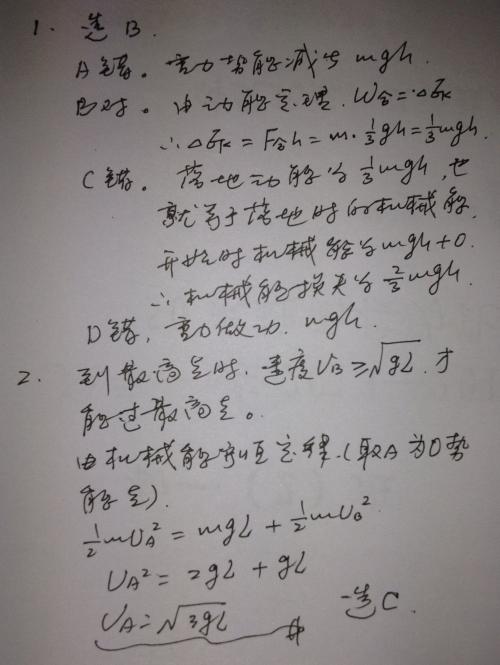 1. 选B.
A错。重力势能减少mgh.
B对。由动能定理. W合=ΔEk
∴ΔEk=F合h=m·1/3gh=1/3mgh.
C错。落地动能为1/3mgh,也
就等于落地时的机械能.
开始时机械能为mgh+0.
∴机械能损失为2/3mgh.
D错,重力做功.mgh.
2. 到最高点时.速度UB≥√gL.才
能过最高点。
由机械能守恒定律.(取A为0势
能点).
1/2mUA²=mgL+1/2mUB²
UA²=2gL+gL
UA=√3gL 选C.